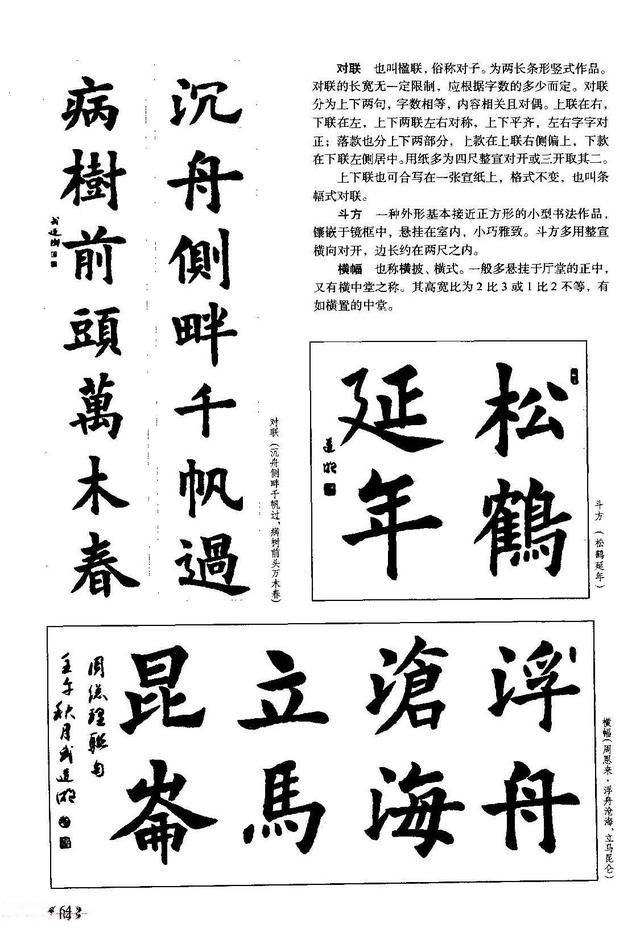 对联 也叫楹联,俗称对子。为两长条形竖式作品。
对联的长宽无一定限制,应根据字数的多少而定。对联
分为上下两句,字数相等,内容相关且对偶。上联在右,
下联在左,上下两联左右对称,上下平齐,左右字字对
正;落款也分上下两部分,上款在上联右侧偏上,下款
在下联左侧居中。用纸多为四尺整宣对开或三开取其二。
上下联也可合写在一张宣纸上,格式不变,也叫条
幅式对联。
斗方 一种外形基本接近正方形的小型书法作品,
镶嵌于镜框中,悬挂在室内,小巧雅致。斗方多用整宣
横向对开,边长约在两尺之内。
横幅 也称横披、横式。一般多悬挂于厅堂的正中,
又有横中堂之称。其高宽比为2比3或1比2不等,有
如横置的中堂。
沉舟側畔千帆過
病樹前頭萬木春
对联(沉舟侧畔千帆过、病树前头万木春)
松鶴
延年
斗方(松鹤延年)
浮舟
滄海
立馬
崑崙
周總理聯句
壬午秋月武道湘
横幅(周恩来·浮舟沧海、立马昆仑)
64